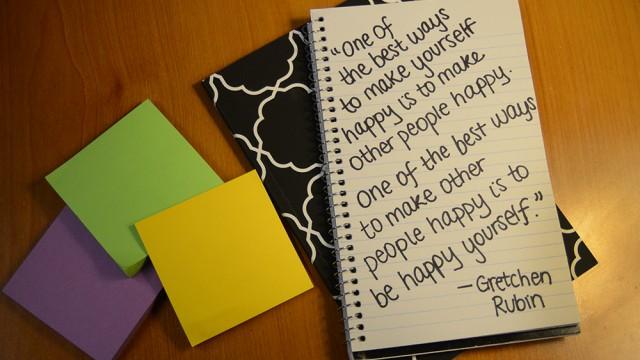 "One of
the best ways
to make yourself
happy is to make
other people happy.
One of the best ways
to make other
people happy is to
be happy yourself."
—Gretchen
Rubin